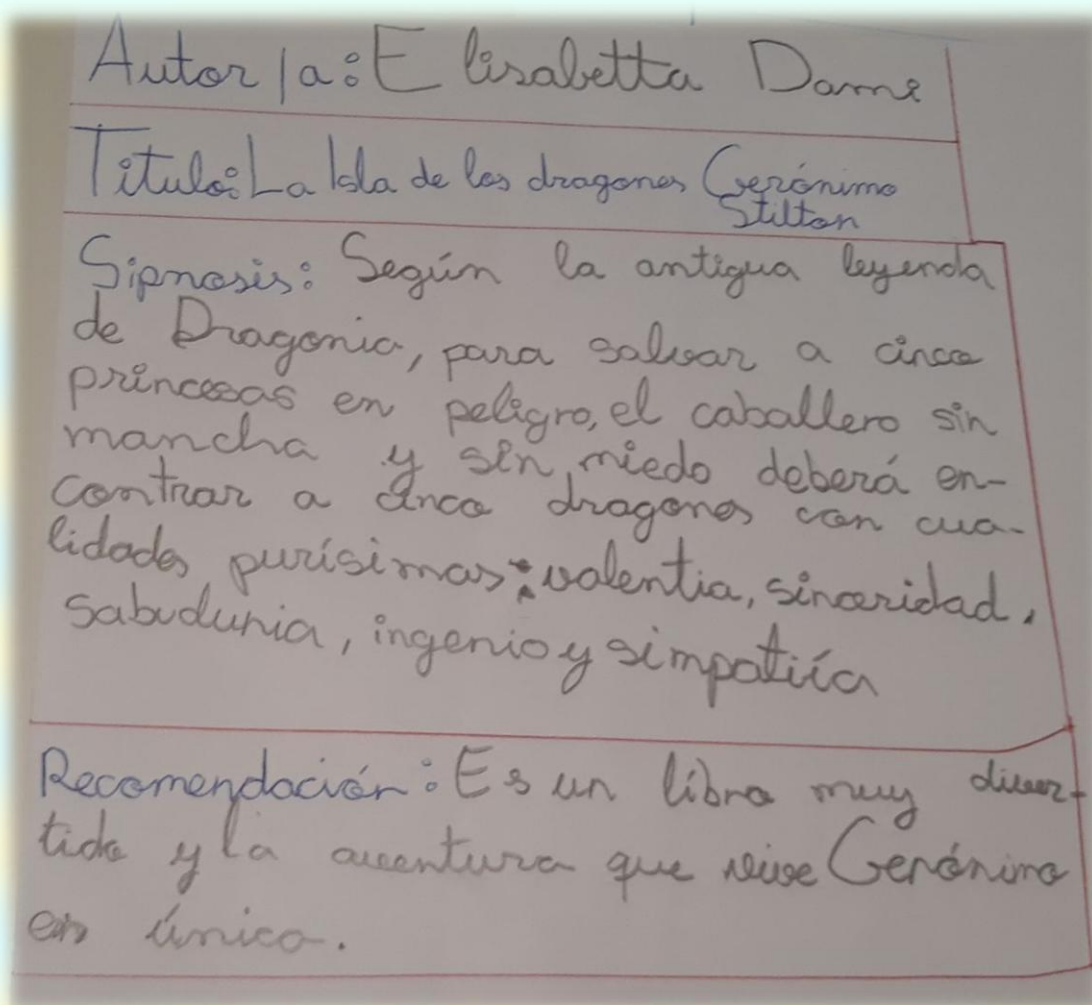 Autor/a: Elisabetta Dami
Título: La Isla de los dragones Gerónimo
Stilton
Sipnosis: Según la antigua leyenda
de Dragonia, para salvar a cinco
princesas en peligro, el caballero sin
mancha y sin miedo deberá en-
contrar a cinco dragones con cua-
lidades purísimas: valentia, sinceridad,
sabuduria, ingenio y simpatiía
Recomendación: Es un libro muy diver-
tido y la aventura que vive Gerónimo
es único.